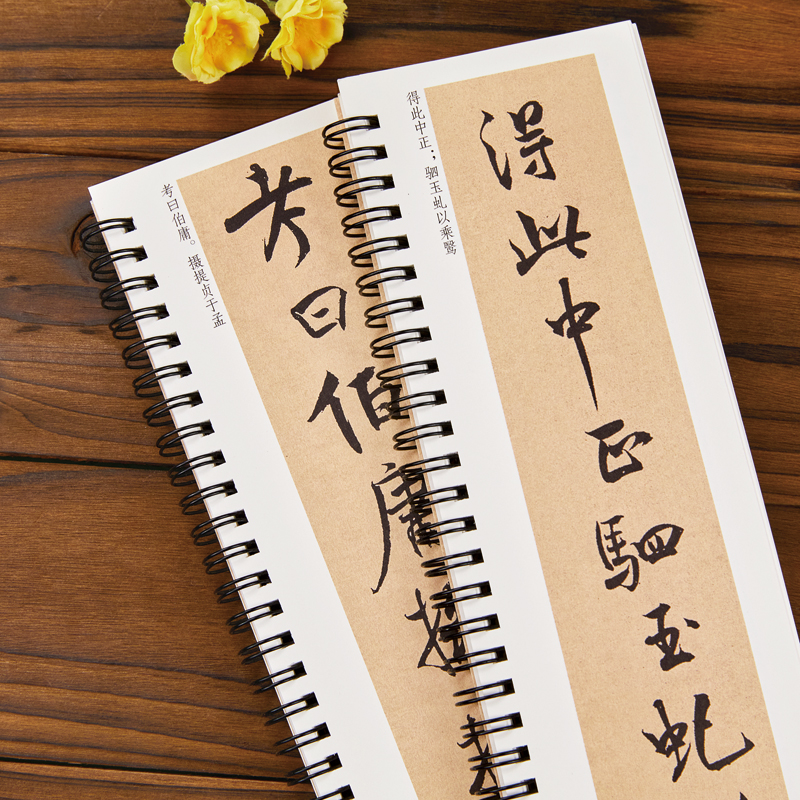 考曰伯庸。摄提贞于孟
考曰伯庸
得此中正；驷玉虬以乘鹥
得此中正駟玉虬